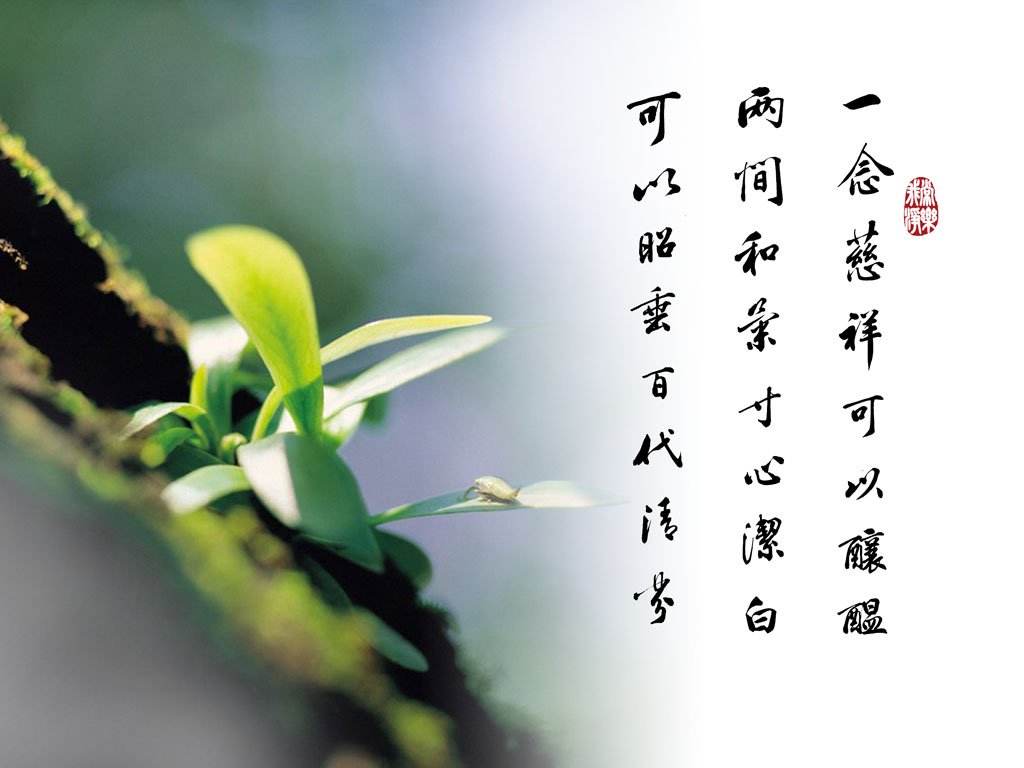 一念慈祥可以釀醞
兩間和氣寸心潔白
可以昭垂百代清芬
常樂
我淨